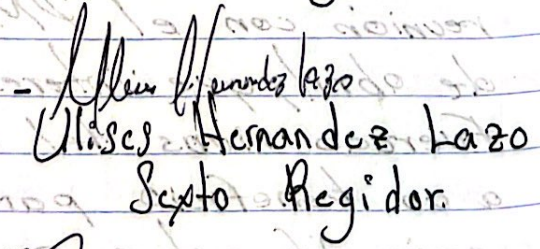 - Ulises Hernandez Lazo
Ulises Hernandez Lazo
Sexto Regidor.